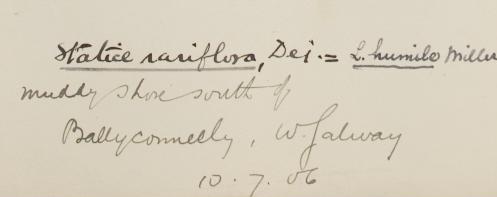 Statice rariflora, Dej. = L. humile Miller
muddy shore south of
Ballyconneely, W. Galway
10.7.06